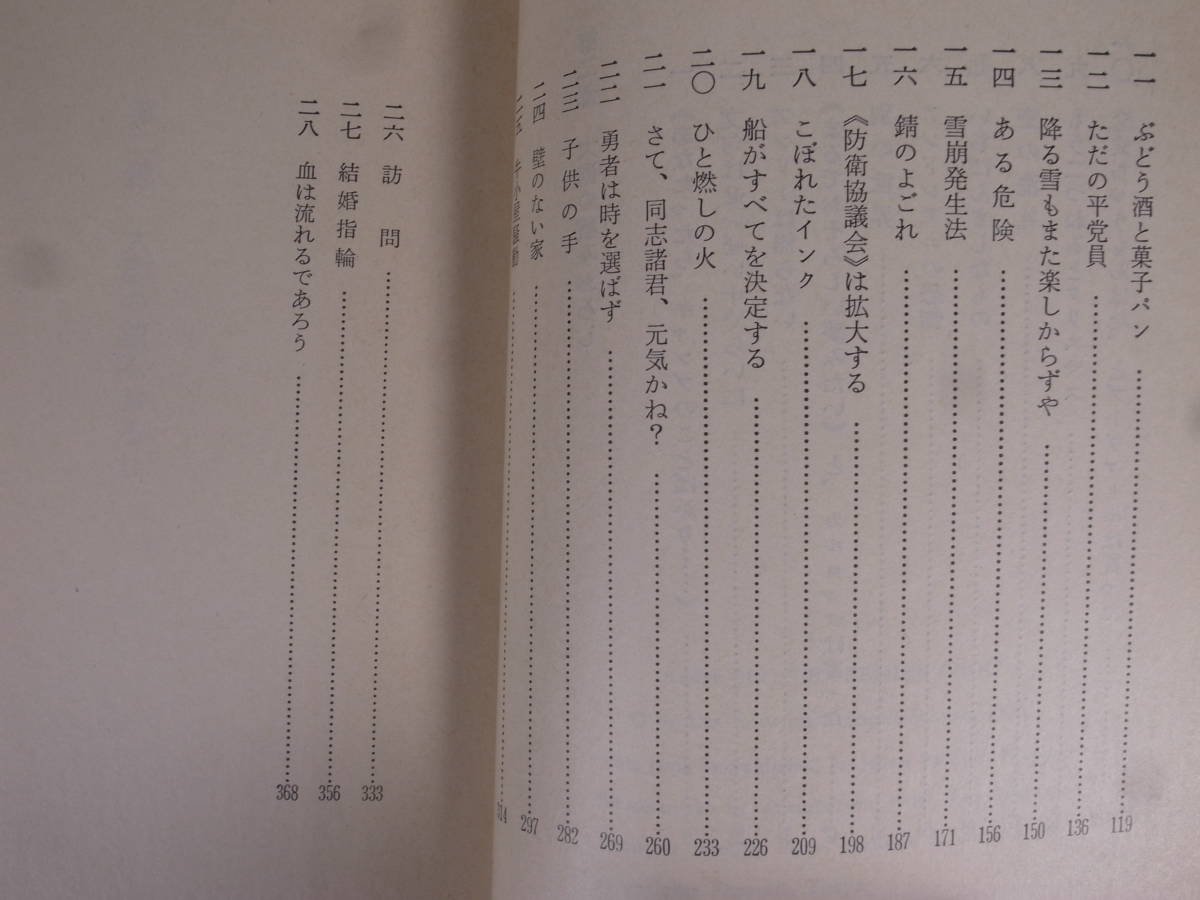 一一 ぶどう酒と菓子パン 119
一二 ただの平党員 136
一三 降る雪もまた楽しからずや 150
一四 ある危険 156
一五 雪崩発生法 171
一六 錆のよごれ 187
一七 《防衛協議会》は拡大する 198
一八 こぼれたインク 209
一九 船がすべてを決定する 226
二〇 ひと燃しの火 233
二一 さて、同志諸君、元気かね？ 260
二二 勇者は時を選ばず 269
二三 子供の手 282
二四 壁のない家 297
二五 314
二六 訪問 333
二七 結婚指輪 356
二八 血は流れるであろう 368